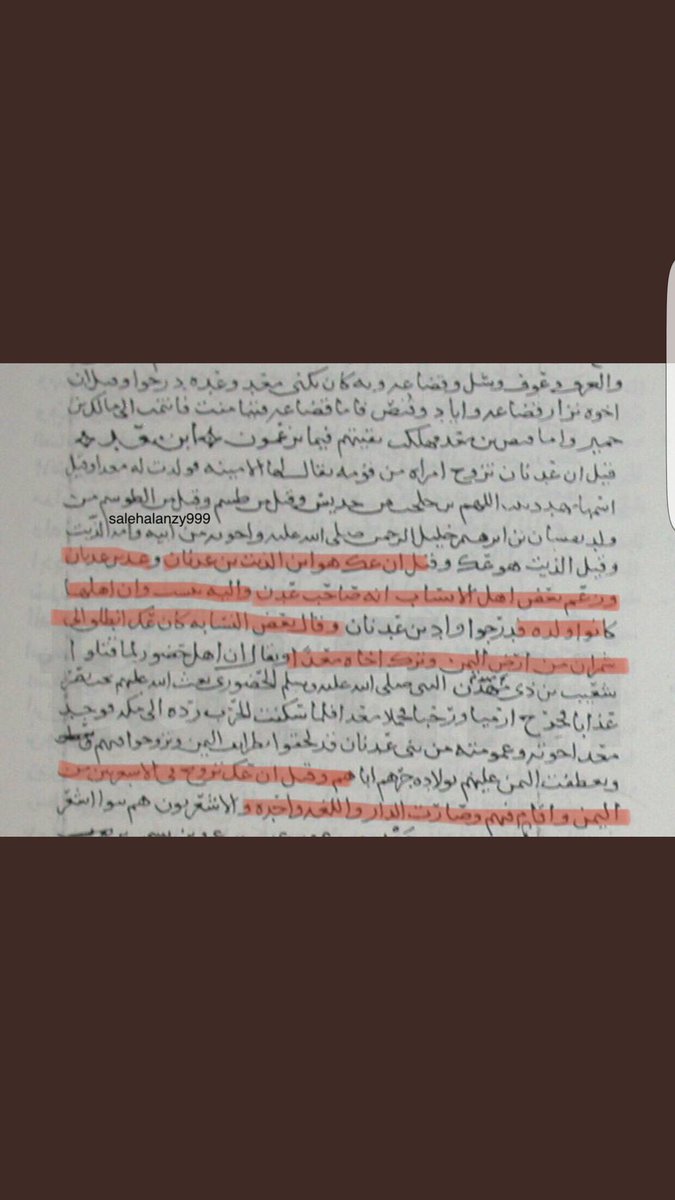 والعرف وعوف وشل وقضاعه وبه كان يكنى معد وعده درجوا وقيل ان
اخوه نزار قضاعه واياد وقنص فاما قضاعه فتيامنت فانتمت الى مالك بن
حمير واما قنص بن معد فهلك بقيتهم فيما يزعمون ابن معد
قيل ان عدنان تزوج امراه من قومه يقال لها الامينه فولدت له معدا وقيل
اسمها مهدد بنت اللهم بن جلحب من جديس وقيل من طسم وقيل من الطوسم من
salehalanzy999
ولد يقسان بن ابرهيم خليل الرحمن صلى الله عليه واخوته من ابيه وامه الديث
وقيل الديث هو عك وقيل ان عك هو ابن الديث بن عدنان وعدن بن عدنان
وزعم بعض اهل الانساب انه صاحب عدن واليه تنسب وان اهلها
كانوا ولده فدرجوا واد بن عدنان وقال بعض النسابه كان عك انطلق الى
سمران من ارض اليمن وترك اخاه معدا ويقال ان اهل حضور لما قتلوا
شعيب بن ذي مهدم النبي صلى الله عليه وسلم الحضوري بعث الله عليهم بخت نصر
عذابا فخرج ارميا وبرخيا فحملا معد فلما سكنت الحرب رده الى مكه فوجد
معد اخوته وعمومته من بني عدنان قد لحقوا بطوايف اليمن وتزوجوا فيهم
وتعطفت اليمن عليهم بولاده جرهم اياهم وقيل ان عك تزوج في الاشعريين من
اليمن واقام فيهم وصارت الدار واللغه واحده والاشعريون هم بنوا اشعر